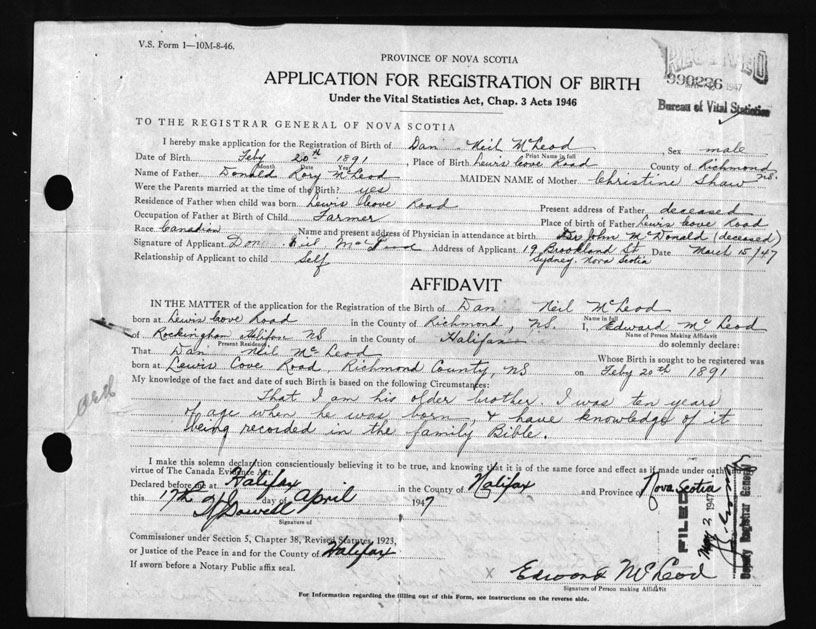 V.S. Form 1—10M-8-46.
PROVINCE OF NOVA SCOTIA
APPLICATION FOR REGISTRATION OF BIRTH
Under the Vital Statistics Act, Chap. 3 Acts 1946
990226
1947
Bureau of Vital Statistics
TO THE REGISTRAR GENERAL OF NOVA SCOTIA
I hereby make application for the Registration of Birth of Dan Neil McLeod, Sex male
Print Name in full
Date of Birth Feby 20th 1891, Place of Birth Lewis Cove Road County of Richmond
Month Date Year
Name of Father Donald Rory McLeod MAIDEN NAME of Mother Christine Shaw N.S.
Were the Parents married at the time of the Birth? yes
Residence of Father when child was born Lewis Cove Road Present address of Father deceased
Occupation of Father at Birth of Child Farmer Place of birth of Father Lewis Cove Road
Race Canadian Name and present address of Physician in attendance at birth Dr John McDonald (deceased)
Signature of Applicant Dan Neil McLeod Address of Applicant 19 Brookland St Date March 15/47
Relationship of Applicant to child self Sydney, Nova Scotia
AFFIDAVIT
IN THE MATTER of the application for the Registration of the Birth of Dan Neil McLeod
Name in full
born at Lewis Cove Road in the County of Richmond, NS. I, Edward McLeod
Name of Person Making Affidavit
of Rockingham Halifax NS in the County of Halifax do solemnly declare:
Present Residence
That Dan Neil McLeod Whose Birth is sought to be registered was
born at Lewis Cove Road, Richmond County, NS on Feby 20th 1891
My knowledge of the fact and date of such Birth is based on the following Circumstances:
That I am his older brother. I was ten years
of age when he was born, & have knowledge of it
being recorded in the family Bible.
I make this solemn declaration conscientiously believing it to be true, and knowing that it is of the same force and effect as if made under oath and by
virtue of The Canada Evidence Act.
Declared before me at Halifax in the County of Halifax and Province of Nova Scotia
this 17th day of April 1947
Signature of
Commissioner under Section 5, Chapter 38, Revised Statutes, 1923,
or Justice of the Peace in and for the County of Halifax
If sworn before a Notary Public affix seal.
x Edward McLeod
Signature of Person making Affidavit
FILED
May 2 1947
Deputy Registrar General
For Information regarding the filling out of this Form, see instructions on the reverse side.